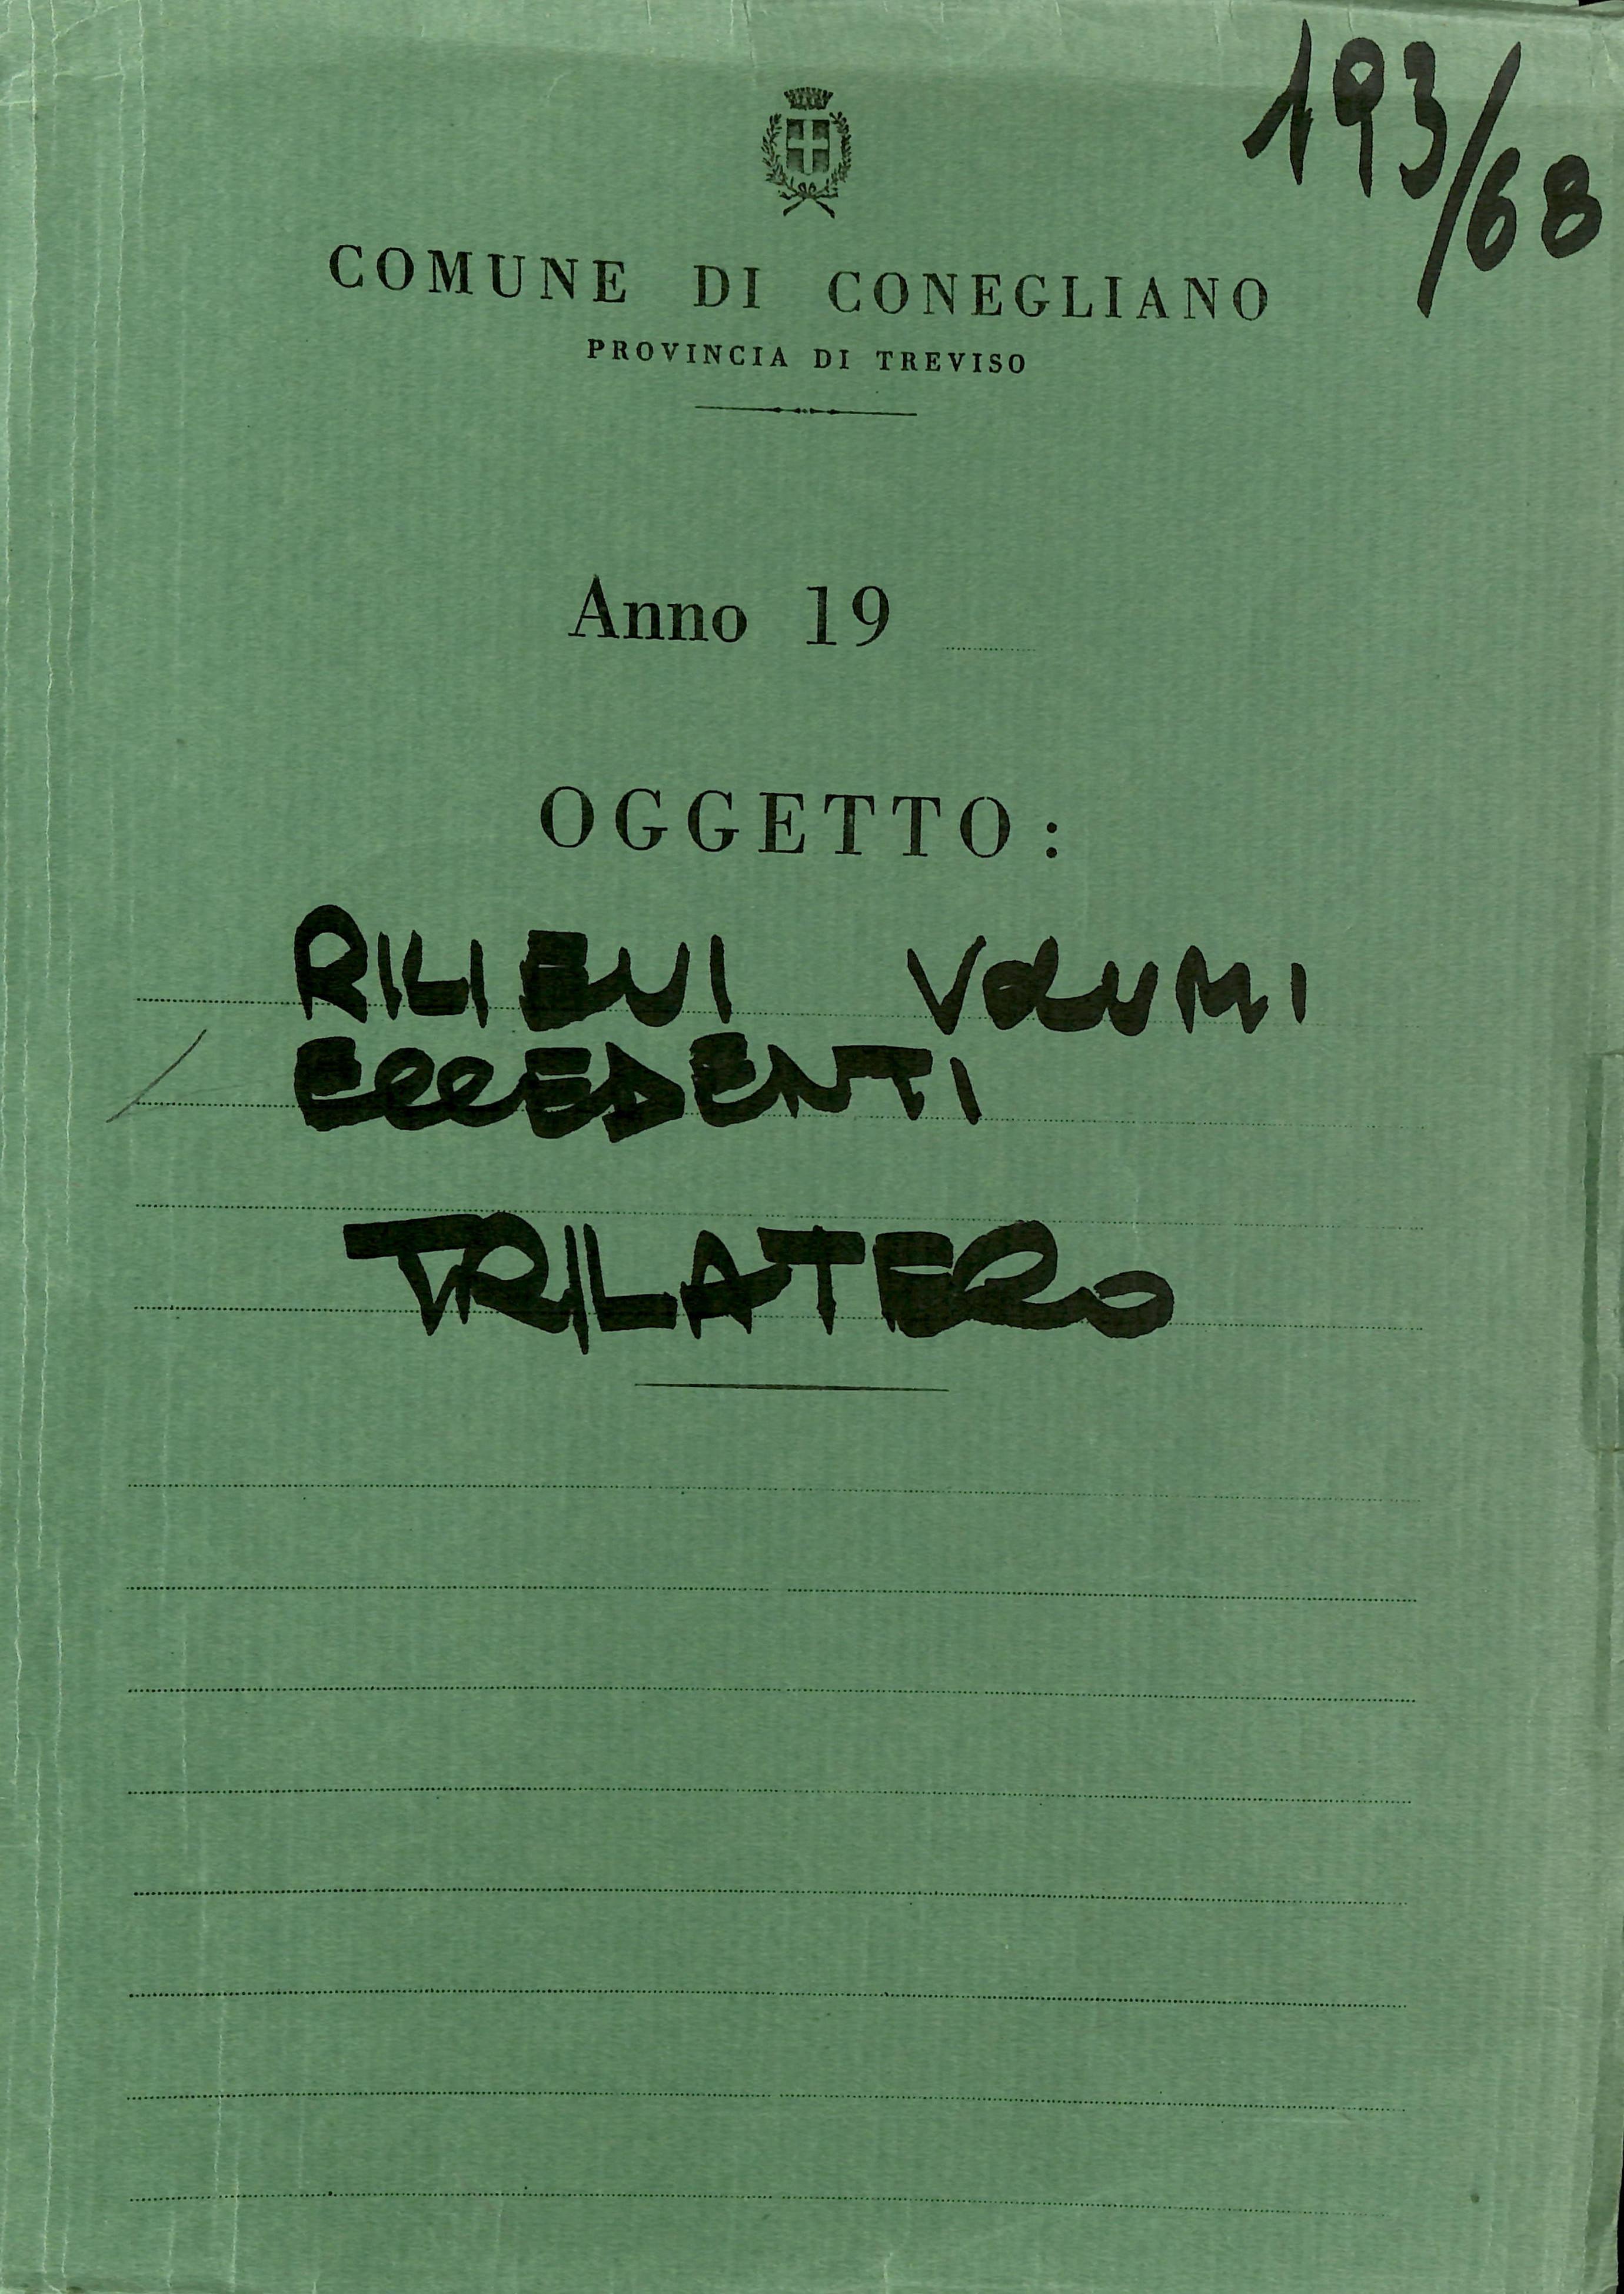 193/68
COMUNE DI CONEGLIANO
PROVINCIA DI TREVISO
Anno 19
OGGETTO:
RILIEVI VOLUMI
ECCEDENTI
TRILATERO